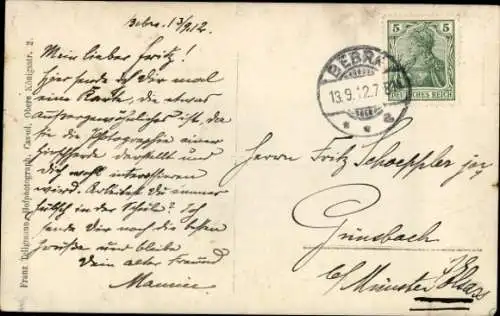 Bebra. 13/9.12.
Mein lieber Fritz!
Hier sende ich Dir mal
eine Karte, die etwas
Aussergewöhnliches ist, da
sie die Photographie einer
darstellt und
Dich wohl interessieren
wird. Arbeitest Du immer
hübsch in der Schule? Ich
sende Dir noch die besten
Grüsse und bleibe
Dein alter Freund
Maurice
Franz Tellgmann, Hofphotograph, Cassel, Obere Königsstr. 2.
BEBRA
13.9.12.7
5 5
DEUTSCHES REICH
Herrn Fritz Schoeppler jr
Günsbach
b/ Münster Elsass